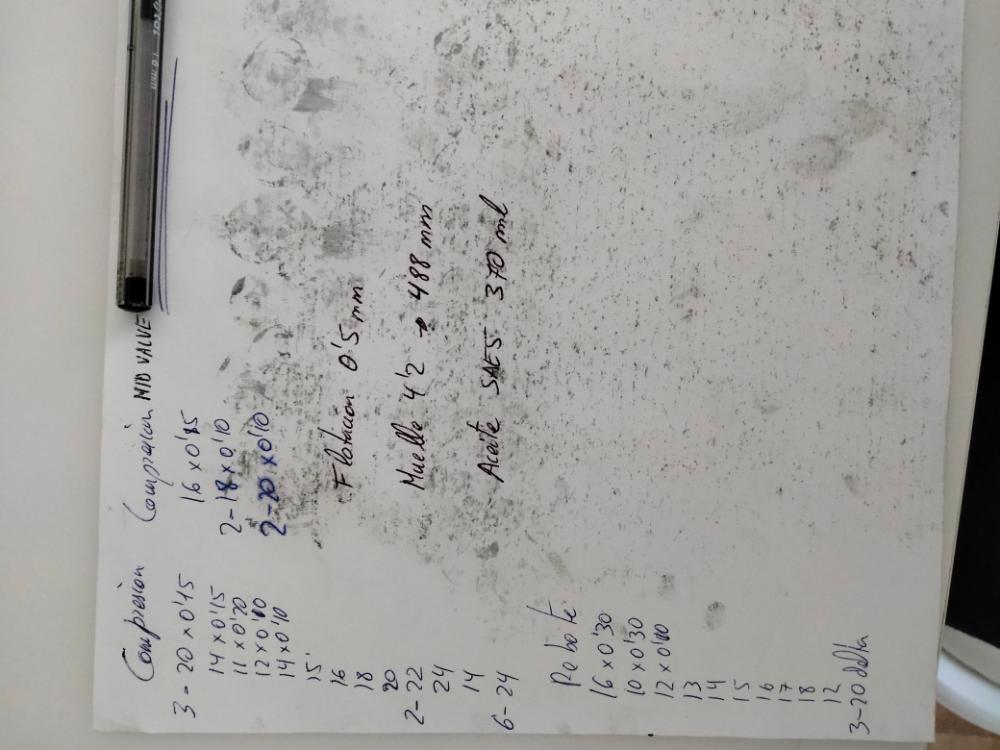 Compresion
3 - 20 x 0'15
14 x 0'15
11 x 0'20
12 x 0'10
14 x 0'10
15
16
18
20
2 - 22
24
14
6 - 24
Compresion MID VALVE
16 x 0'15
2 - 18 x 0'10
2 - 20 x 0'10
Flotacion 0'5 mm
Muelle 4'2 → 488 mm
Aceite SAE5 370 ml
Rebote
16 x 0'30
10 x 0'30
12 x 0'10
13
14
15
16
17
18
12
3 - 20 delta